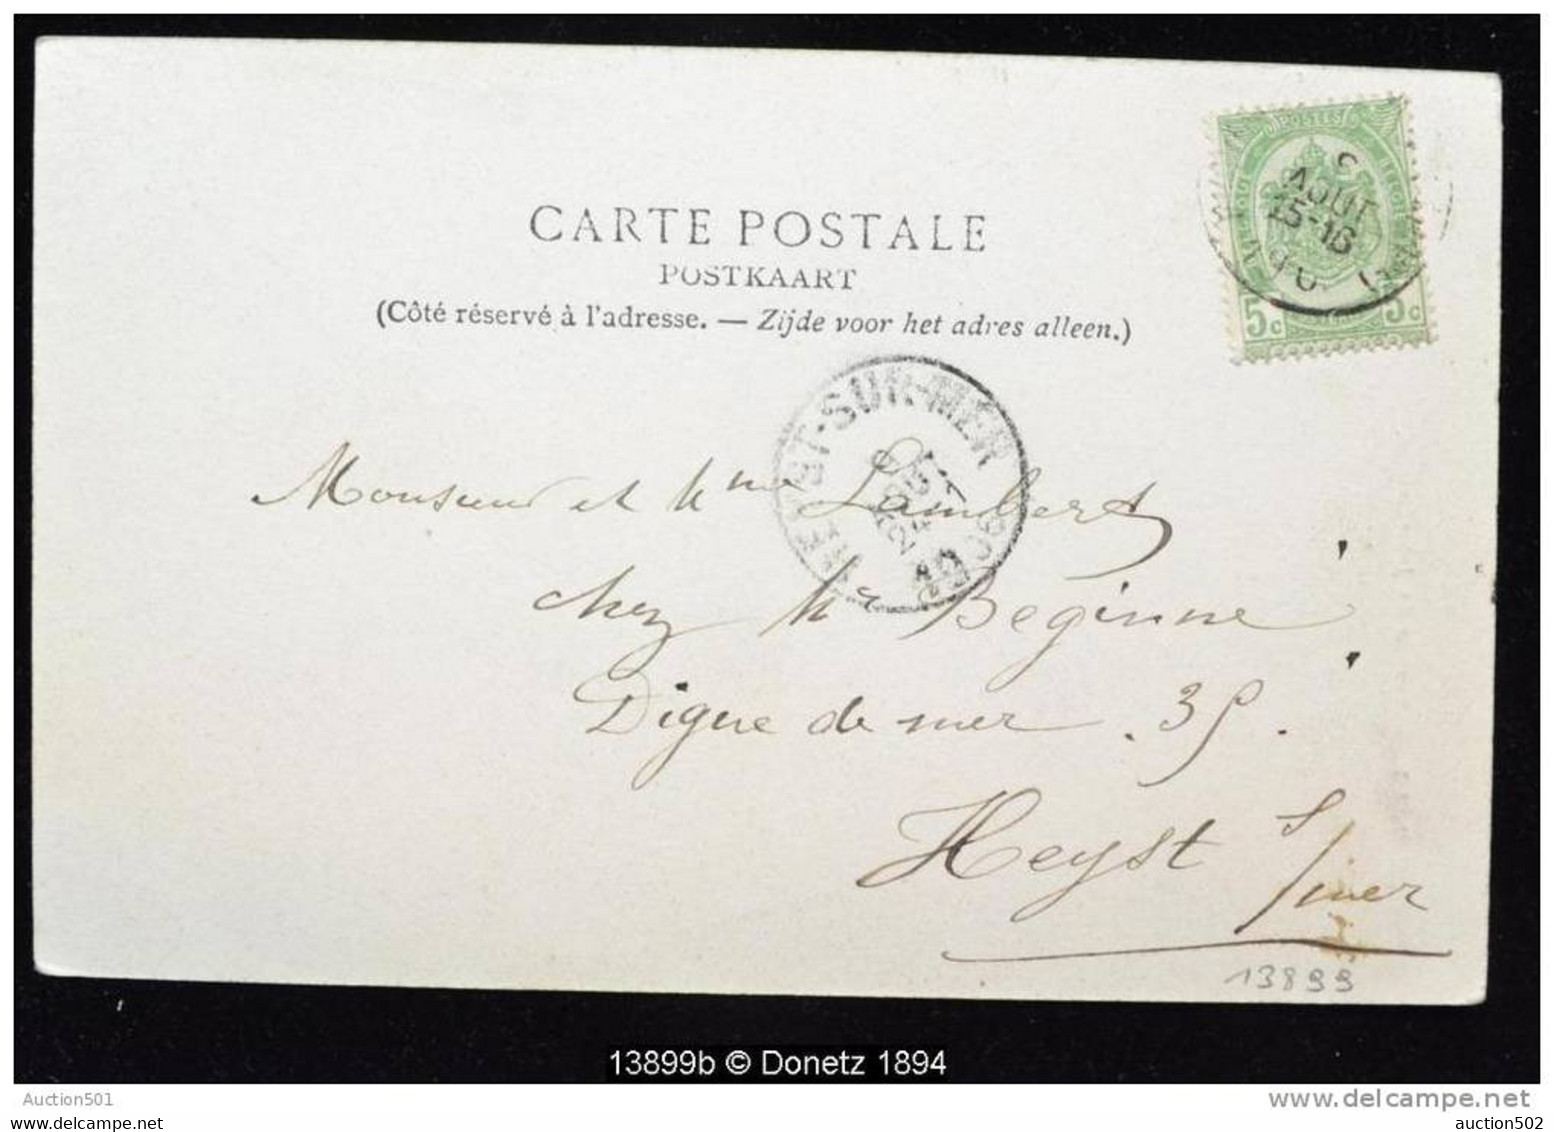 POSTES
AOUT
15-16
5c 5c
CARTE POSTALE
POSTKAART
(Côté réservé à l'adresse. — Zijde voor het adres alleen.)
HEYST-SUR-MER
Monsieur et Mme Lambert
chez Mr Beginne
Digue de mer . 35 .
Heyst s/mer
13899
13899b © Donetz 1894
Auction501
www.delcampe.net
www.delcampe.net
auction502